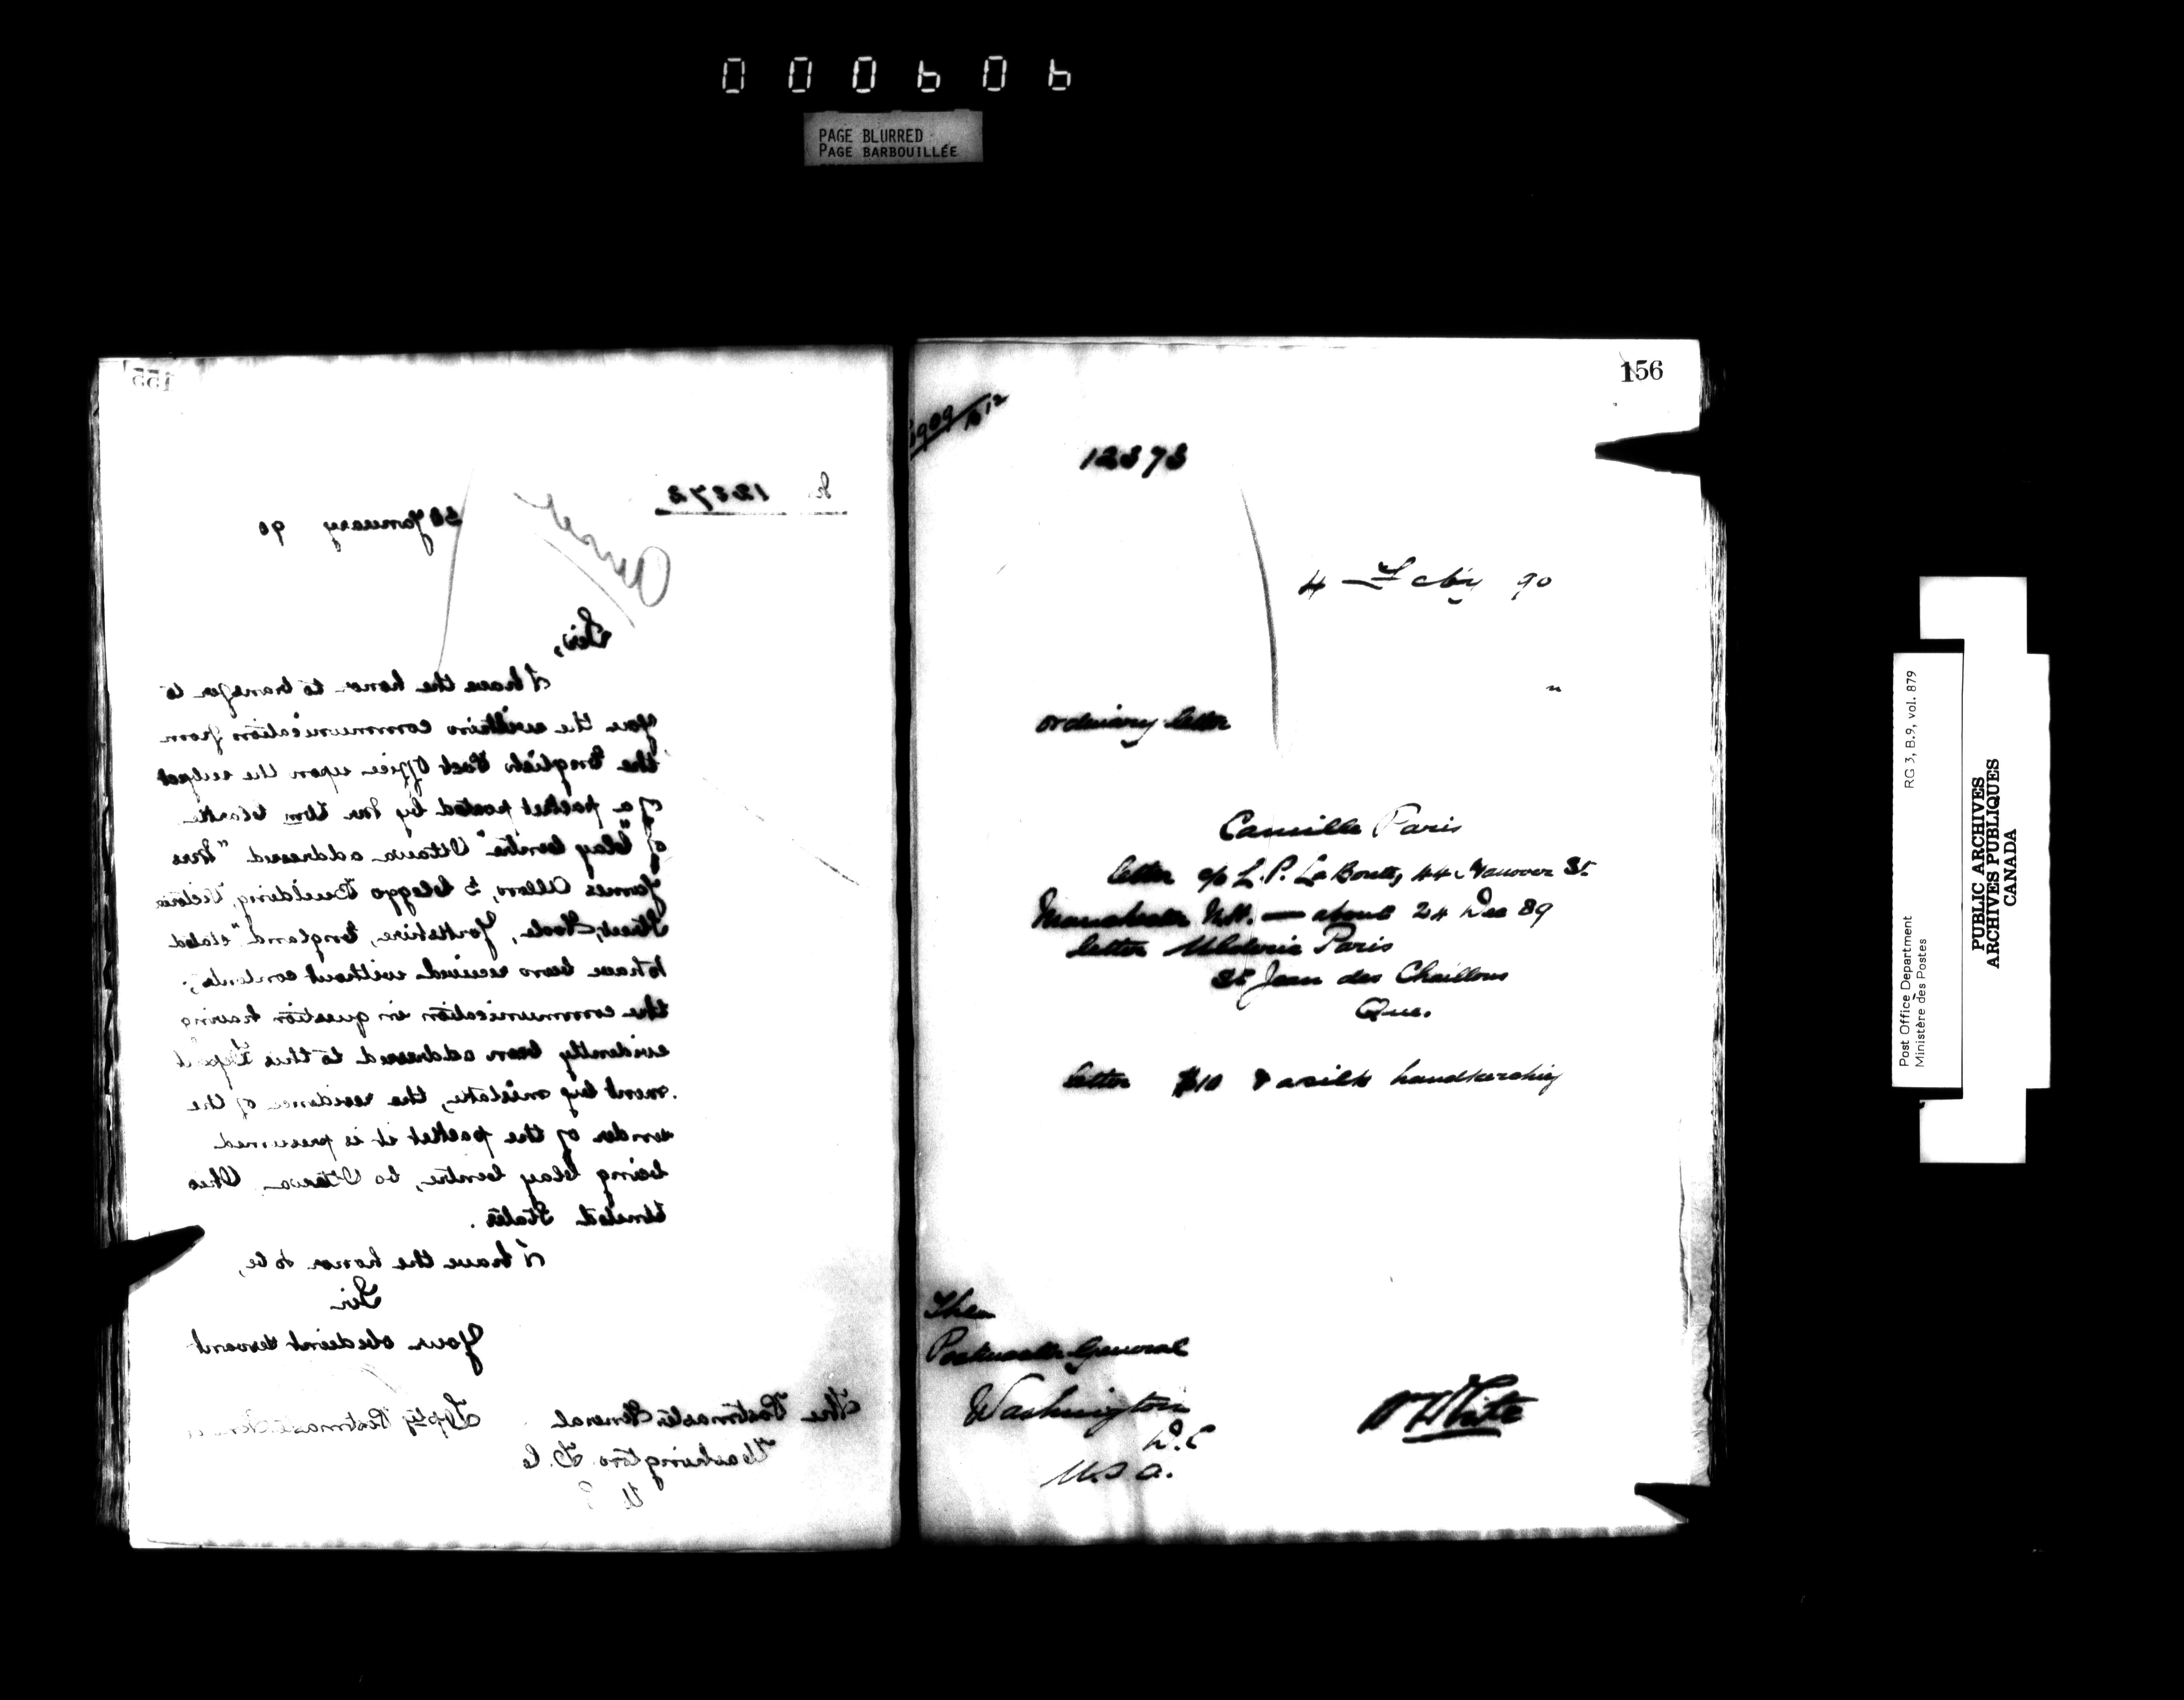 000606
PAGE BLURRED
PAGE BARBOUILLÉE
155
12373
30 January 90
Sir,
I have the honor to transfer to
you the within communication from
the English Post Office upon the subject
of a packet posted by Mr Wm Clarke
of "Clay Centre" Ottawa addressed "Mrs
James Allen, 5, Cleggs Building, Victoria
Street, Goole, Yorkshire, England" stated
to have been received without contents;
the communication in question having
evidently been addressed to this Depart
ment by mistake, the residence of the
sender of the packet it is presumed
being Clay Centre, Co Ottawa Ohio
United States.
I have the honor to be,
Sir
Your obedient servant
Dpty Postmaster
The Postmaster General
Washington D.C
U S
156
12373
4 Feby 90
"
ordinary letter
Camille Paris
letter c/o L. P. La Boutt, 44 Hanover St.
Manchester N.H. — about 24 Dec 89
letter Paris
St Jean des Chaillons
Que.
letter $10 & a silk handkerchief
The
Postmaster General
Washington
D.C
U.S.A.
W White
Post Office Department
Ministère des Postes
RG 3, B.9, vol. 879
PUBLIC ARCHIVES
ARCHIVES PUBLIQUES
CANADA